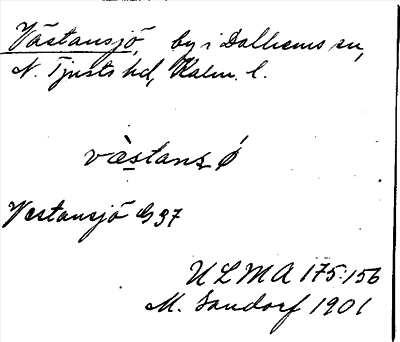 Västansjö, by i Dalhems sn,
N. Tjusts hd, Kalm. l.
västans ö
Vestansjö G 37
ULMA 175:156
M. Sandorf 1901